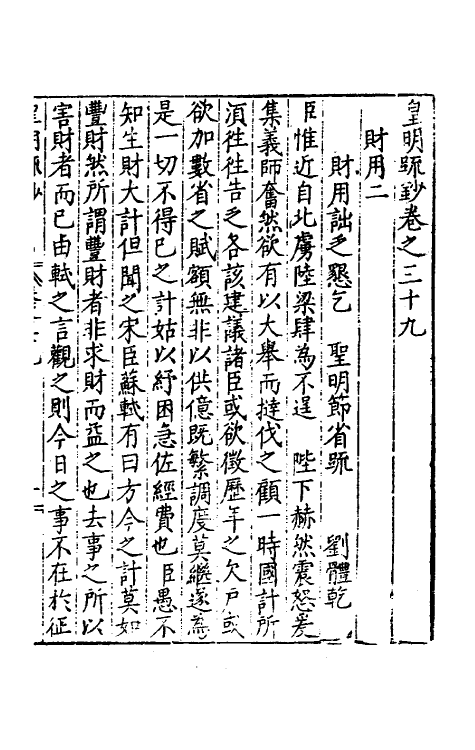 皇明疏鈔卷之三十九
財用二
財用詘乏懇乞　聖明節省疏　劉體乾
臣惟近自北虜陸梁肆為不逞　陛下赫然震怒爰
集義師奮然欲有以大舉而撻伐之顧一時國計所
須往往告乏各該建議諸臣或欲徵歷年之欠戶或
欲加數省之賦額無非以供億既繁調度莫繼遂為
是一切不得已之計姑以紓困急佐經費也臣愚不
知生財大計但聞之宋臣蘇軾有曰方今之計莫如
豐財然所謂豐財者非求財而益之也去事之所以
害財者而已由軾之言觀之則今日之事不在於征
皇明疏鈔